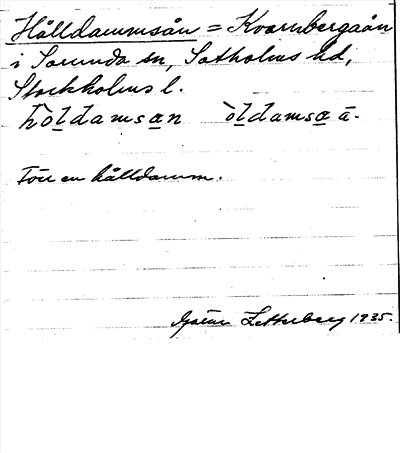 Hålldammsån = Kvarnbergaån
i Sorunda sn, Sotholms hd,
Stockholms l.
hòldamsan òldamsa ā-
Förr en hålldamm.
Götar Zetterberg 1935.